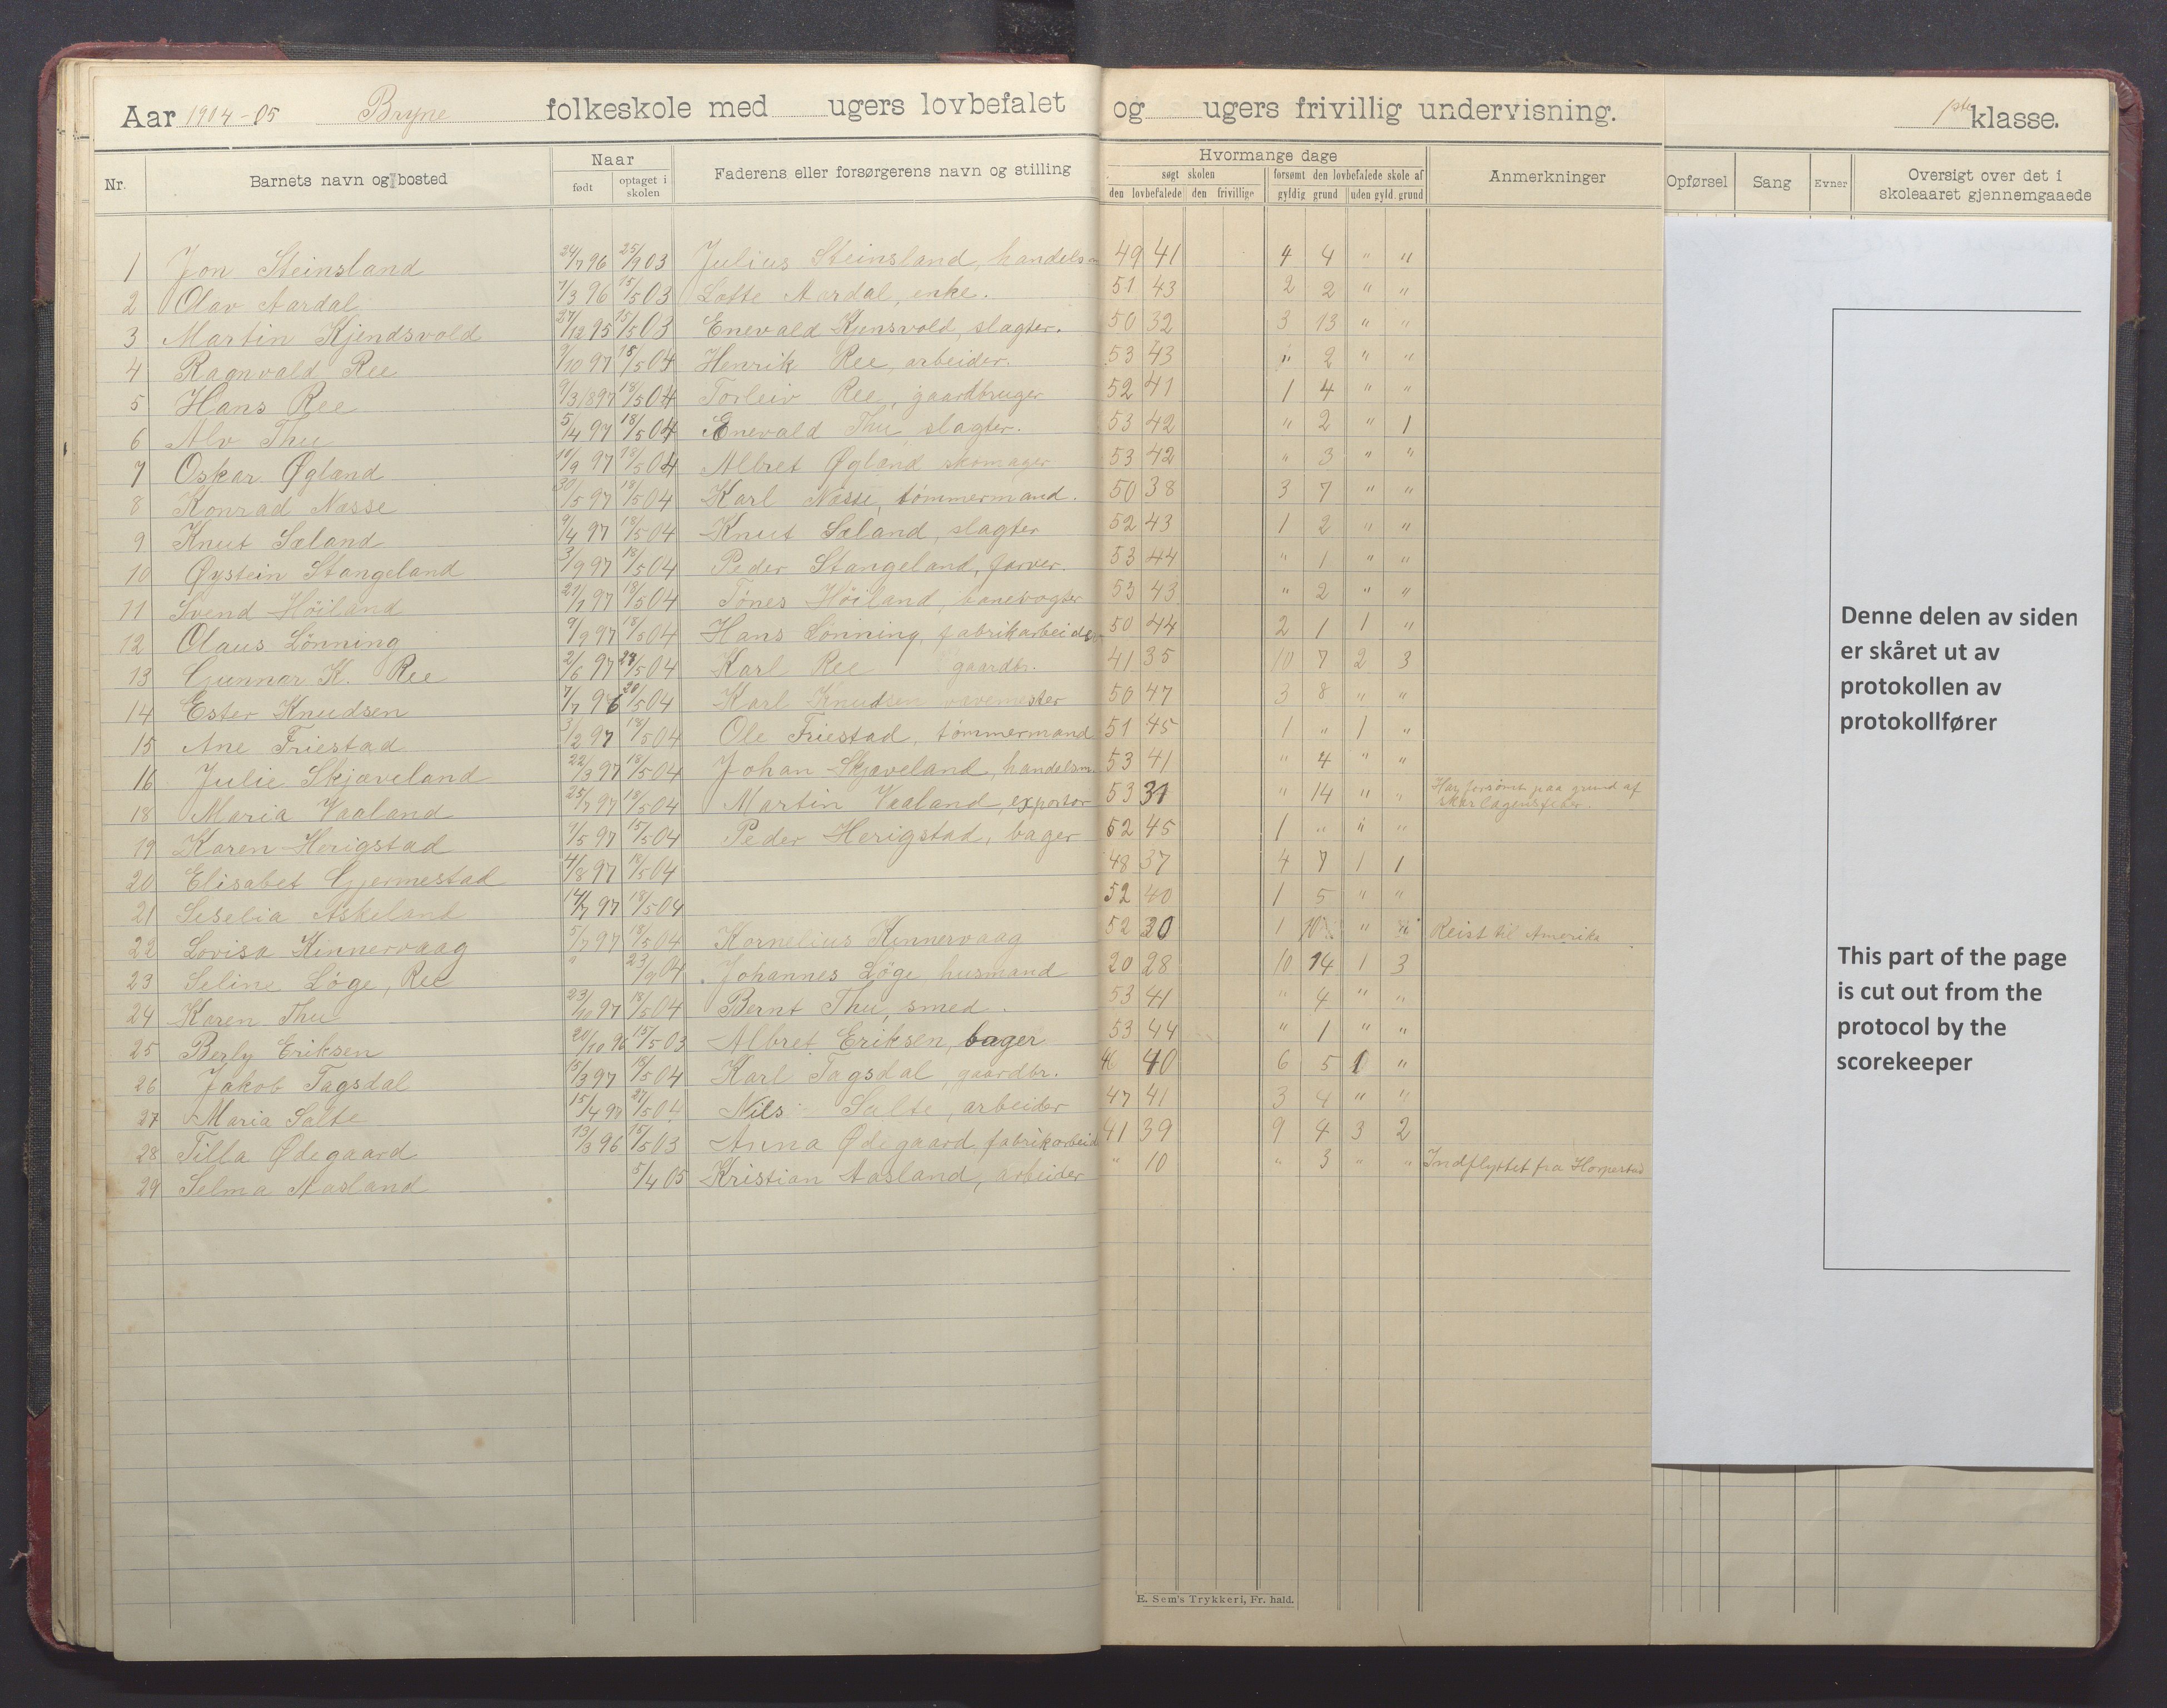 Aar 1904-05 Bryne folkeskole med ugers lovbefalet og ugers frivillig undervisning. 1ste klasse.
Nr. Barnets navn og bosted Naar født optaget i skolen Faderens eller forsørgerens navn og stilling Hvormange dage søgt skolen den lovbefalede den frivillige forsømt den lovbefalede skole af gyldig grund uden gyld. grund Anmerkninger Opførsel Sang Evner Oversigt over det i skoleaaret gjennemgaaede
1 Jon Steinsland 24/7 96 25/9 03 Julius Steinsland, handelsm 49 41 4 4 " "
2 Olav Aardal 7/3 96 15/5 03 Lotte Aardal, enke. 51 43 2 2 " "
3 Martin Kjendsvold 27/12 95 15/5 03 Enevald Kjensvold, slagter. 50 32 3 13 " "
4 Ragnvald Ree 9/10 97 18/5 04 Henrik Ree, arbeider. 53 43 " 2 " "
5 Hans Ree 9/3 1897 18/5 04 Torleiv Ree, gaardbruger 52 41 1 4 " "
6 Alv Thu 5/4 97 18/5 04 Enevald Thu, slagter. 53 42 " 2 " 1
7 Oskar Øgland 10/9 97 18/5 04 Albret Øgland skomager 53 42 " 3 " "
8 Konrad Næsse 30/5 97 18/5 04 Karl Næsse, tømmermand. 50 38 3 7 " "
9 Knut Sæland 9/4 97 18/5 04 Knut Sæland, slagter 52 43 1 2 " "
10 Øystein Stangeland 3/9 97 18/5 04 Peder Stangeland, farver. 53 44 " 1 " "
11 Svend Høiland 27/7 97 18/5 04 Tønes Høiland, banevogter 53 43 " 2 " "
12 Olaus Lønning 9/9 97 18/5 04 Hans Lønning, fabrikarbeider 50 44 2 1 1 "
13 Gunnar K. Ree 2/6 97 24/5 04 Karl Ree gaardbr. 41 35 10 7 2 3
14 Ester Knudsen 7/7 96 20/5 04 Karl Knudsen vævemester 50 47 3 8 " "
15 Ane Friestad 3/2 97 18/5 04 Ole Friestad, tømmermand 51 45 1 " 1 "
16 Julie Skjæveland 22/3 97 18/5 04 Johan Skjæveland, handelsm. 53 41 " 4 " "
18 Maria Vaaland 25/7 97 18/5 04 Martin Vaaland, exportør 53 31 " 14 " " Har forsømt paa grund af skarlagensfeber.
19 Karen Herigstad 4/5 97 15/5 04 Peder Herigstad, bager 52 45 1 " " "
20 Elisabet Gjermestad 4/8 97 18/5 04 48 37 4 7 1 1
21 Seselia Askeland 14/7 97 18/5 04 52 40 1 5 " "
22 Lovisa Kinnervaag 5/7 97 18/5 04 Kornelius Kinnervaag 52 20 1 10 " " Reist til Amerika
23 Seline Løge, Ree " 23/9 04 Johannes Løge husmand 20 28 10 14 1 3
24 Karen Thu 23/10 97 18/5 04 Bernt Thu, smed. 53 41 " 4 " "
25 Berly Eriksen 20/10 96 15/5 03 Albret Eriksen, bager 53 44 " 1 " "
26 Jakob Tagsdal 3/3 97 18/5 04 Karl Tagsdal, gaardbr. 46 40 6 5 1 "
27 Maria Salte 15/4 97 27/5 04 Nils Salte, arbeider 47 41 3 4 " "
28 Tilla Ødegaard 13/3 96 15/5 03 Anna Ødegaard fabrikarbeid 41 39 9 4 3 2
29 Selma Aasland 5/4 05 Kristian Aasland, arbeider " 10 " 3 " " Indflyttet fra Horpestad
E. Sem's Trykkeri, Fr. hald.
Denne delen av siden
er skåret ut av
protokollen av
protokollfører
This part of the page
is cut out from the
protocol by the
scorekeeper